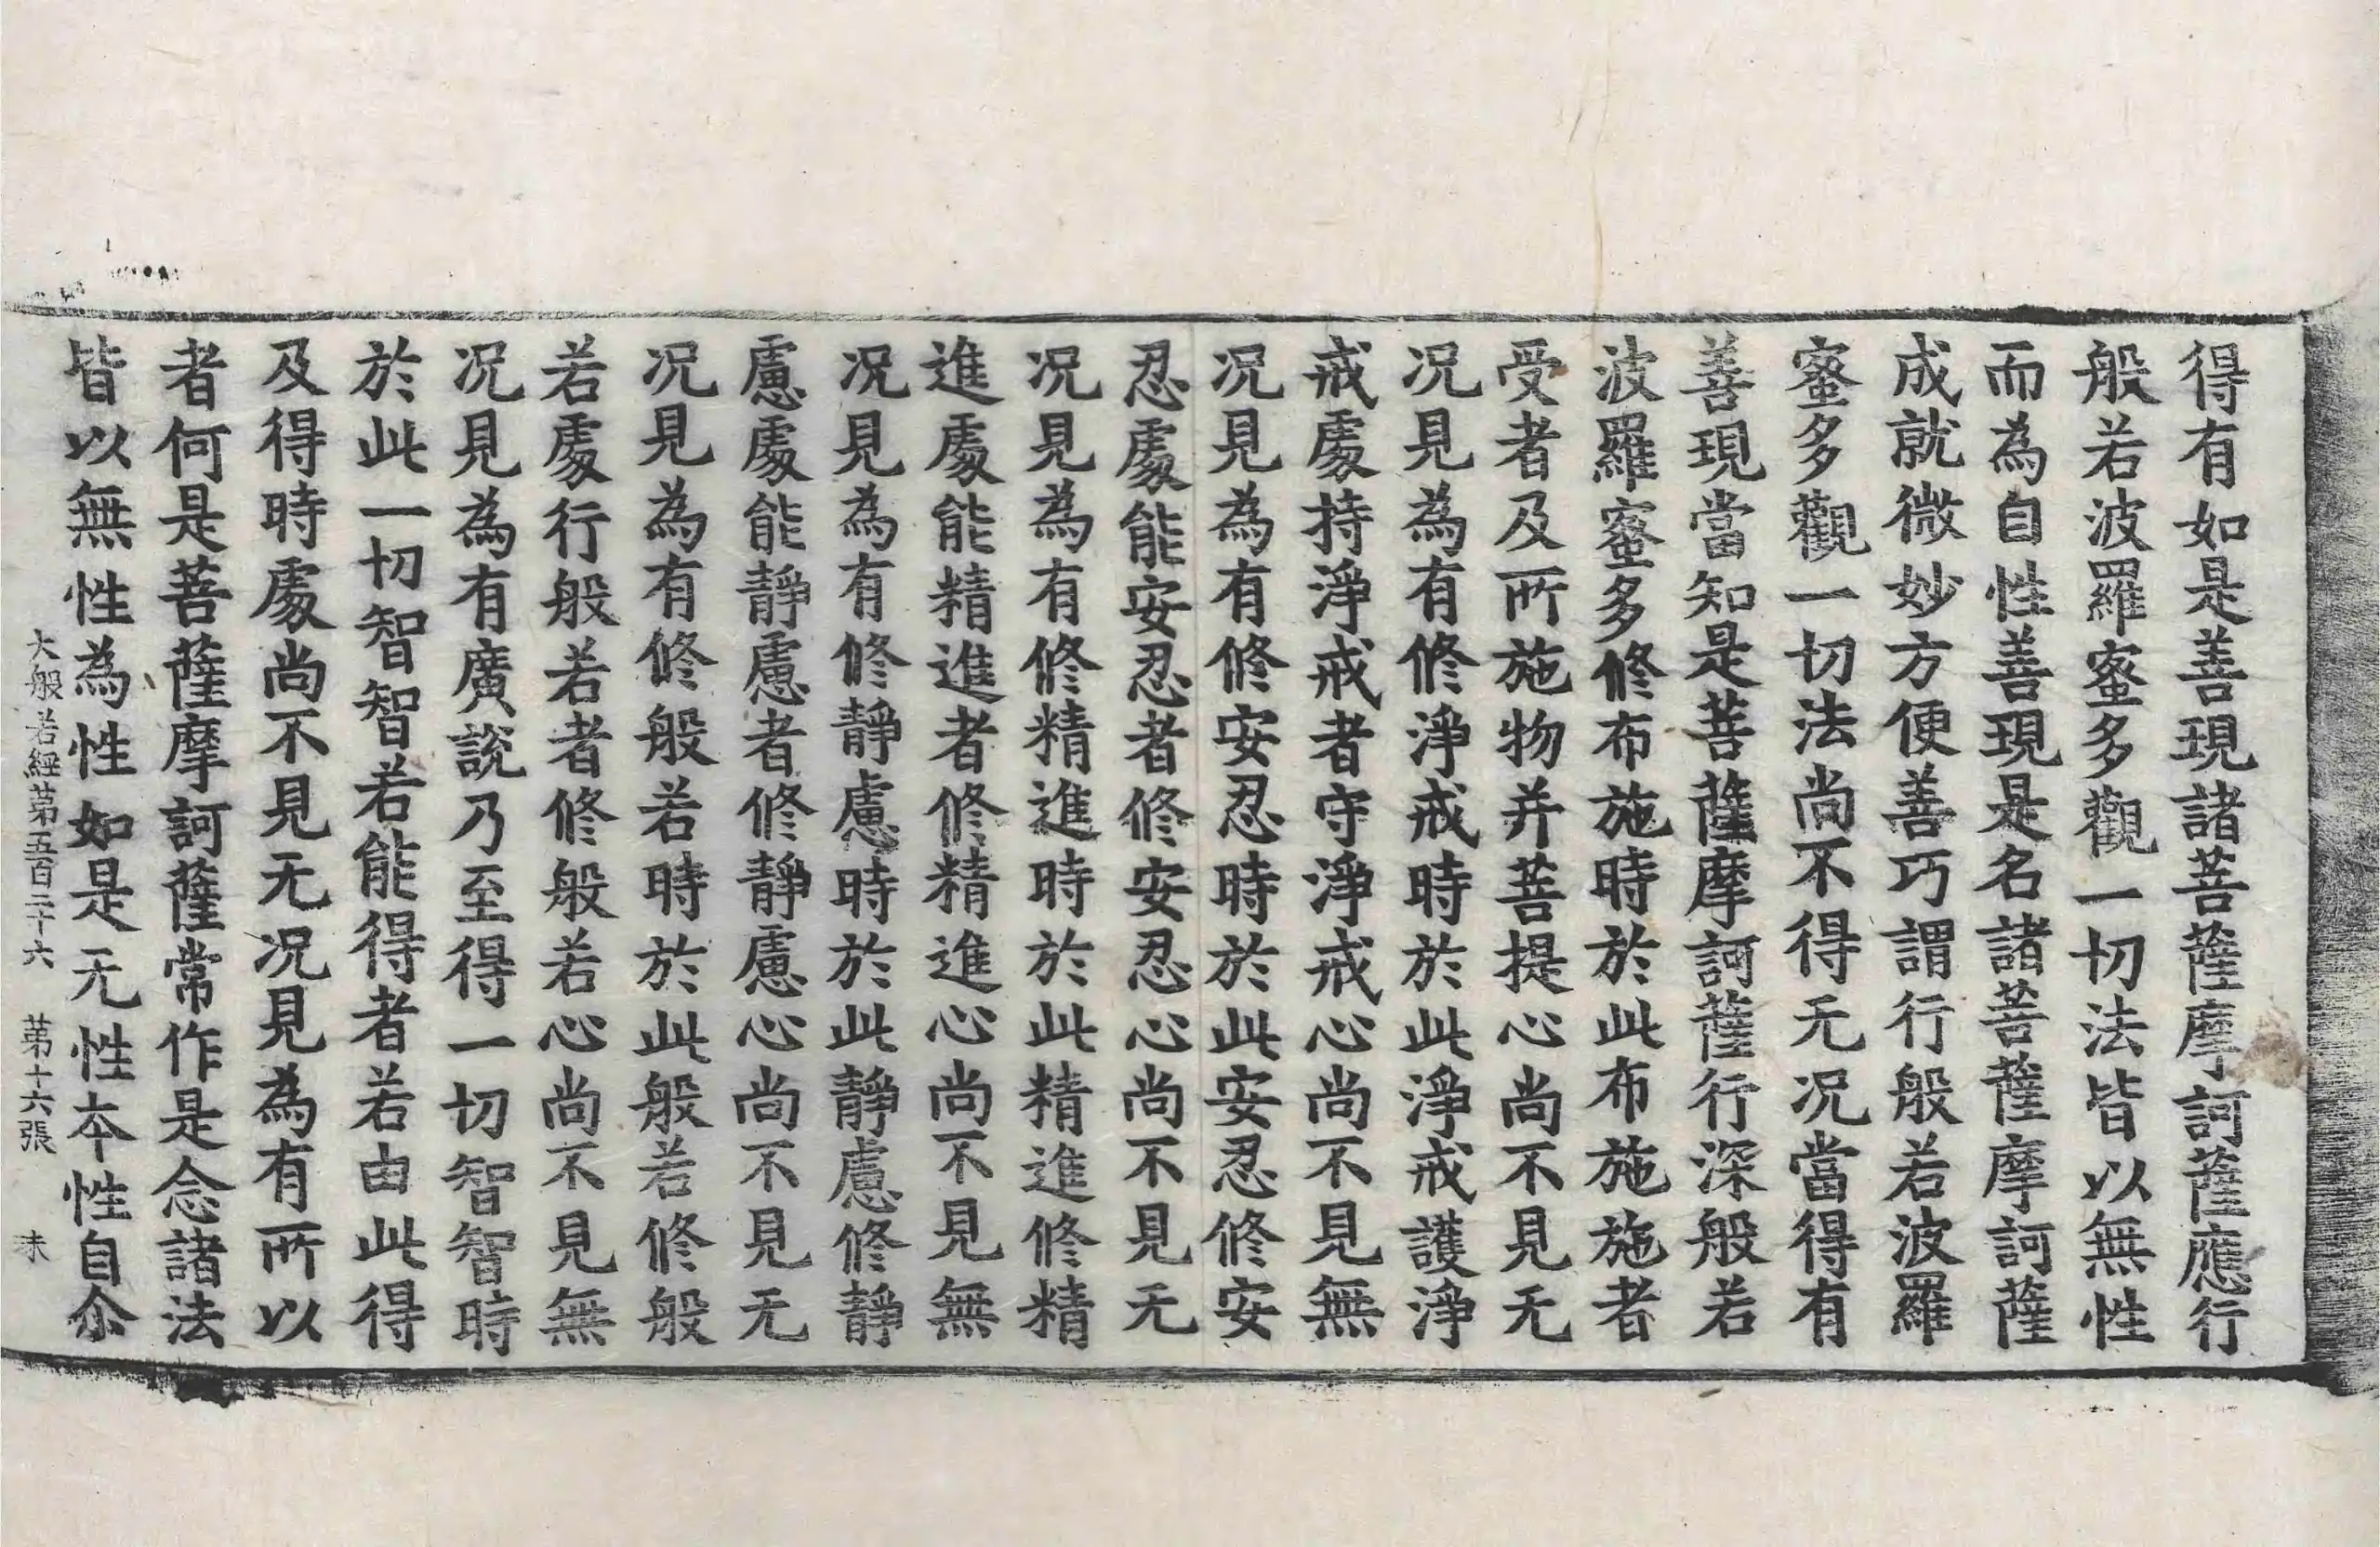 得有如是善現諸菩薩摩訶薩應行
般若波羅蜜多觀一切法皆以無性
而為自性善現是名諸菩薩摩訶薩
成就微妙方便善巧謂行般若波羅
蜜多觀一切法尚不得无况當得有
善現當知是菩薩摩訶薩行深般若
波羅蜜多修布施時於此布施施者
受者及所施物并菩提心尚不見无
况見為有修淨戒時於此淨戒護淨
戒處持淨戒者守淨戒心尚不見無
况見為有修安忍時於此安忍修安
忍處能安忍者修安忍心尚不見无
况見為有修精進時於此精進修精
進處能精進者修精進心尚不見無
况見為有修靜慮時於此靜慮修靜
慮處能靜慮者修靜慮心尚不見无
况見為有修般若時於此般若修般
若處行般若者修般若心尚不見無
况見為有廣說乃至得一切智智時
於此一切智智若能得者若由此得
及得時處尚不見无况見為有所以
者何是菩薩摩訶薩常作是念諸法
皆以無性為性如是无性本性自尒
大般若經第五百二十六 第十六張 未